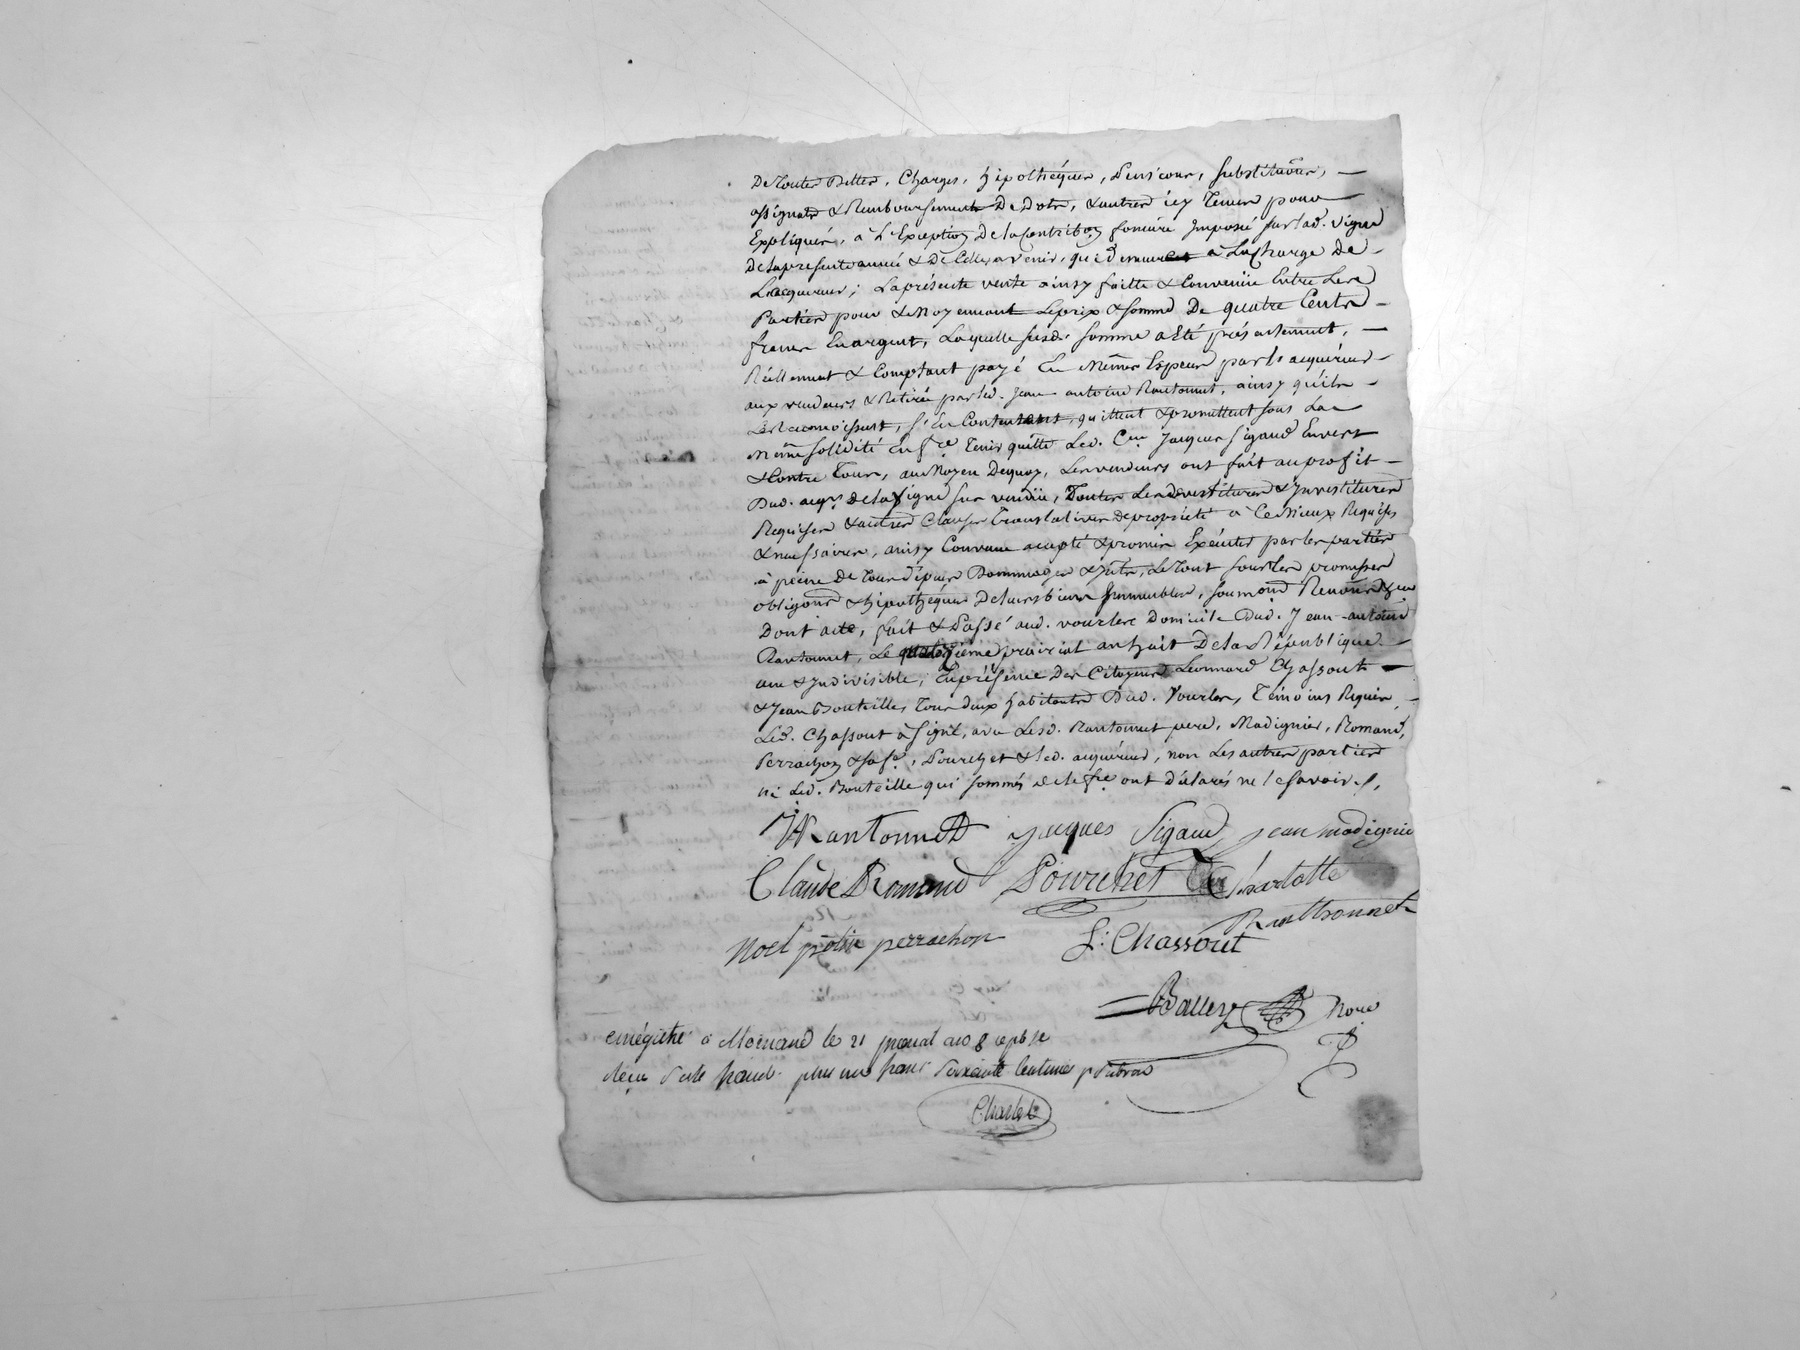 De Toutes Dettes, Charges, hipothéques, Pensions, substituõns, —
assignats & Remboursement De Dots, & autres icy Tenus pour
Expliqués, à L'Exception De la Contribõn fonciere Imposée sur lad. vigne
De la presente année & De Celles avenir, qui demeurent à La Charge De -
L'acquereur; La présente vente ainsy faitte & Convenüe Entre Les
Parties pour & Moyennant Le prix & somme De quatre Cents -
francs En argent, Laquelle susd. somme a Eté présentement, —
Réellement & Comptant payé En Mêmes Especes par led. acquéreur -
aux vendeurs & Retirée par led. Jean antoine Rantonnet, ainsy qu'ils -
Le Reconnoissent, s'En Contentent, quittent & promettent sous La
Même solidité En fre Tenir quitte Led. Cen Jacques Sigaud Envers
& Contre Tous, au Moyen Dequoy, Les vendeurs ont fait au profit -
Dud. aqr De la vigne sus vendüe, Toutes Les devestitures & Investitures
Requises & autres Clauses Translatives De propriété à Ce Mieux Requises
& necessaires, ainsy Convenu accepté & promis Exécuter par les parties
à peine De Tous dépens Dommages & Intts, Le Tout sous les promesses
obligõns & hipothéques De leurs biens Immeubles, soumõns Renõns &
Dont acte, fait & Passé aud. vourles Domicile Dud. Jean antoine
Rantonnet, Le prairial an huit De la République
une & Indivisible; En présence Des Citoyens Leonnard Chassout —
& Jean Bouteille, Tous deux habitants Dud. Vourles, Témoins Requis, -
Led. Chassout à signé, avec Lesd. Rantonnet pere, Madignier, Romand,
Perrachon & sa fe, Pourchet & led. acquéreur, non Les autres parties
ni Led. Bouteille qui sommés De le fre ont déclarés ne le savoir./.
JA Rantonnett Jacques Sigaud Jean madignie
Claude Romand Pourchet Charlotte
Ranthonnet
Noel perrachon L: Chassout
Ballery Nore
enregistré a le 21 prairial an 8 repbse
Reçu francs plus un franc soixante Centimes pr
Charlet